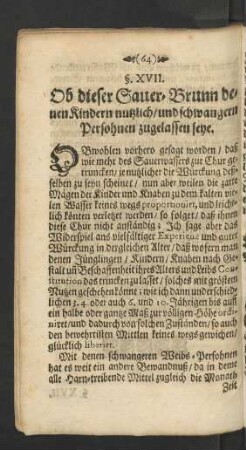 (64)
§. XVII.
Ob dieser Sauer-Brunn de-
nen Kindern nutzlich/und schwangern
Persohnen zugelassen seye.
OBwohlen vorhero gesagt worden / daß
wie mehr des Sauerwassers zur Chur ge-
truncken/ je nutzlicher die Würckung des-
selben zu seyn scheinet / nun aber weilen die zarte
Mägen der Kinder und Knaben zu dem kalten vie-
len Wasser keines wegs proportionirt, und leicht-
lich könten verletzet werden / so folget / daß ihnen
diese Chur nicht anständig: Ich sage aber daß
Widerspiel aus vielfältiger Experienz und guter
Würckung in dergleichen Alter / daß wofern man
denen Jünglingen / Kindern / Knaben nach Ge-
stalt uñ Beschaffenheit ihres Alters und Leibs Con-
stitution das trincken zulasset / solches mit grösten
Nutzen geschehen könne: wie ich dann underschiedli-
chen 3. 4. oder auch 6. und 10. Jährigen biß auff
ein halbe oder gantze Maß zur völligen Höhe ordi-
niret/und dadurch von solchen Zuständen/ so auch
den bewehrtisten Mittlen keines wegs gewichen/
glücklich liberiret.
Mit denen schwangeren Weibs-Persohnen
hat es weit ein andere Bewandnuß / da in deme
alle Harn-treibende Mittel zugleich die Monath
Zeit